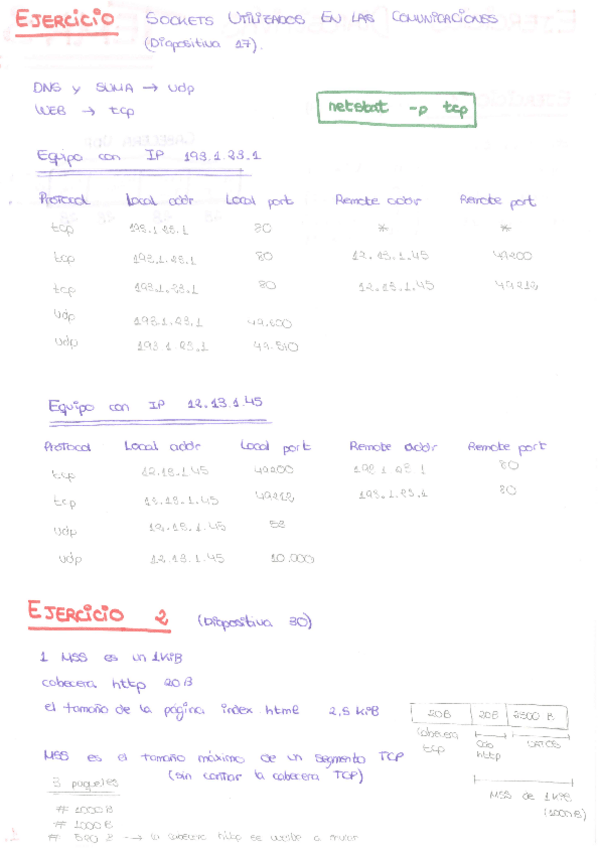 EJERCICIO SOCKETS UTILIZADOS EN LAS COMUNICACIONES
(Diapositiva 17).
DNS y SUMA → udp
WEB → tcp
netstat -p tcp
Equipo con IP 193.1.23.1
Protocol Local addr Local port Remote addr Remote port
tcp 193.1.23.1 80 * *
tcp 193.1.23.1 80 12.13.1.45 49200
tcp 193.1.23.1 80 12.13.1.45 49212
udp 193.1.23.1 49.600
udp 193.1.23.1 49.510
Equipo con IP 12.13.1.45
Protocol Local addr Local port Remote addr Remote port
tcp 12.13.1.45 49200 193.1.23.1 80
tcp 12.13.1.45 49212 193.1.23.1 80
udp 12.13.1.45 53
udp 12.13.1.45 10.000
EJERCICIO 2 (Diapositiva 30)
1 MSS es un 1KiB
cabecera http 20B
el tamaño de la página index.html 2,5 KiB
20B 20B 2500 B
cabecera tcp
cab http
DATOS
MSS es el tamaño máximo de un segmento TCP
(sin contar la cabecera TCP)
MSS de 1KiB
(1000B)
3 paquetes
# 1000B
# 1000B
# 520 B → la cabecera http se vuelve a